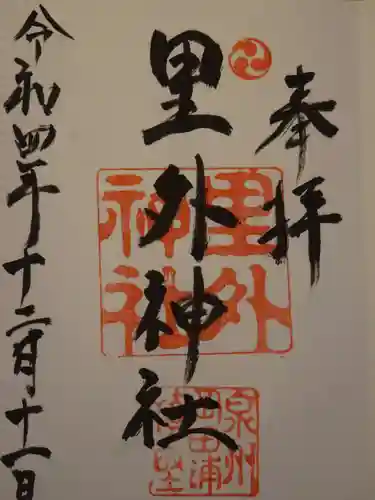 奉拝
里外神社
令和四年十二月十一日
里外神社
泉州
岡田浦